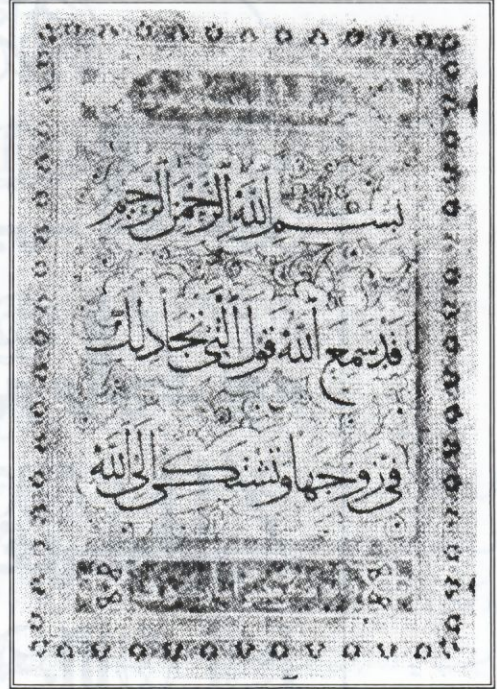 بِسْمِ ٱللَّهِ ٱلرَّحْمَٰنِ ٱلرَّحِيمِ
قَدْ سَمِعَ ٱللَّهُ قَوْلَ ٱلَّتِي تُجَادِلُكَ
فِي زَوْجِهَا وَتَشْتَكِي إِلَى ٱللَّهِ